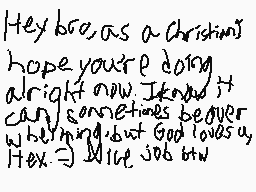 Hey bro, as a Christian I
hope you're doing
alright now. I know it
can sometimes be over
whelming, but God loves u,
Hex. =) Nice job btw